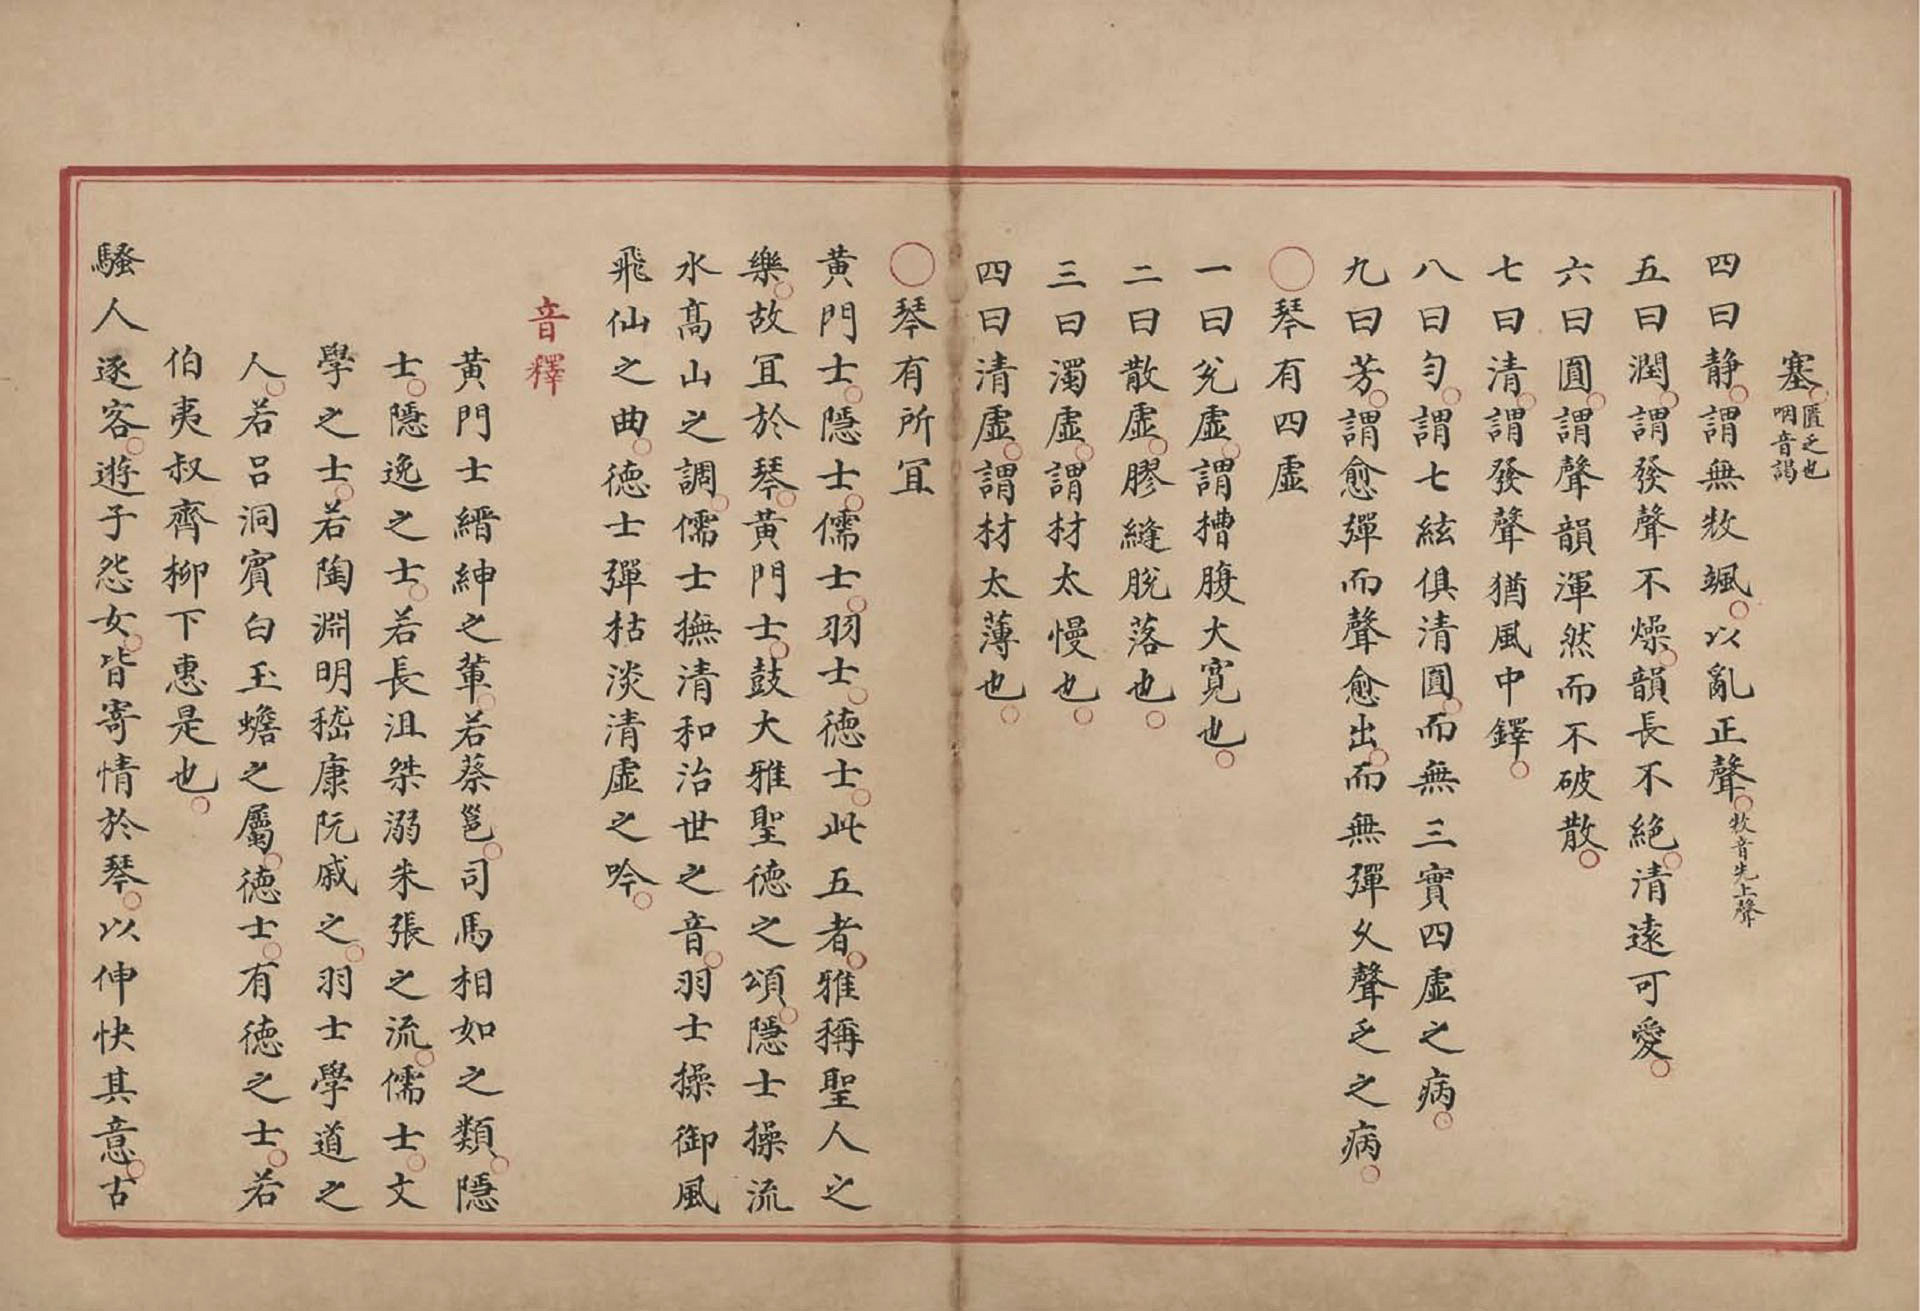 塞匱乏也咽音謁
四曰静謂無㪇颯以亂正聲㪇音先上聲
五曰潤謂發聲不燥韻長不絶清遠可愛
六曰圓謂聲韻渾然而不破散
七曰清謂發聲猶風中鐸
八曰匀謂七絃俱清圓而無三實四虚之病
九曰芳謂愈彈而聲愈出而無彈久聲乏之病
○琴有四虚
一曰兊虚謂槽腹大寛也
二曰散虚膠縫脫落也
三曰濁虚謂材太慢也
四曰清虚謂材太薄也
○琴有所冝
黄門士隱士儒士羽士徳士此五者雅稱聖人之
樂故冝於琴黄門士鼓大雅聖徳之頌隱士操流
水髙山之調儒士撫清和治世之音羽士操御風
飛仙之曲徳士彈枯淡清虚之吟
音釋
黄門士縉紳之輩若蔡邕司馬相如之類隱
士隱逸之士若長沮桀溺朱張之流儒士文
學之士若陶淵明嵇康阮戚之羽士學道之
人若呂洞賓白玉蟾之屬徳士有徳之士若
伯夷叔齊柳下惠是也
騷人逐客逰子怨女皆寄情於琴以伸快其意古